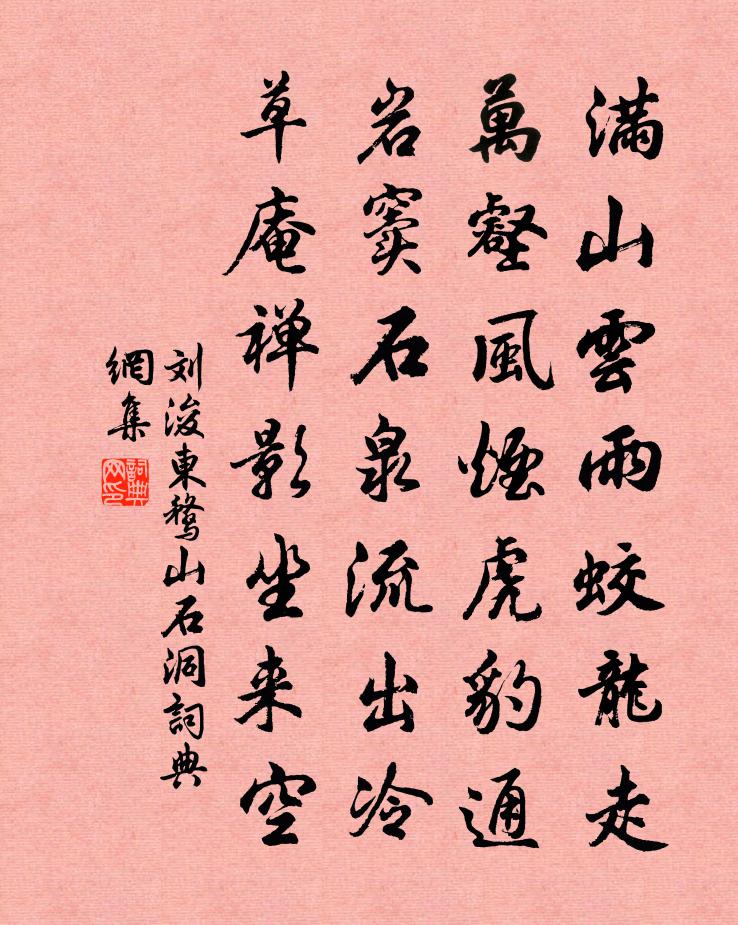 滿山雲雨蛟龍走
萬壑風煙虎豹通
岩窦石泉流出冷
草庵禅影坐来空
刘浚東鹜山石洞詞典
網集
詞典
网印